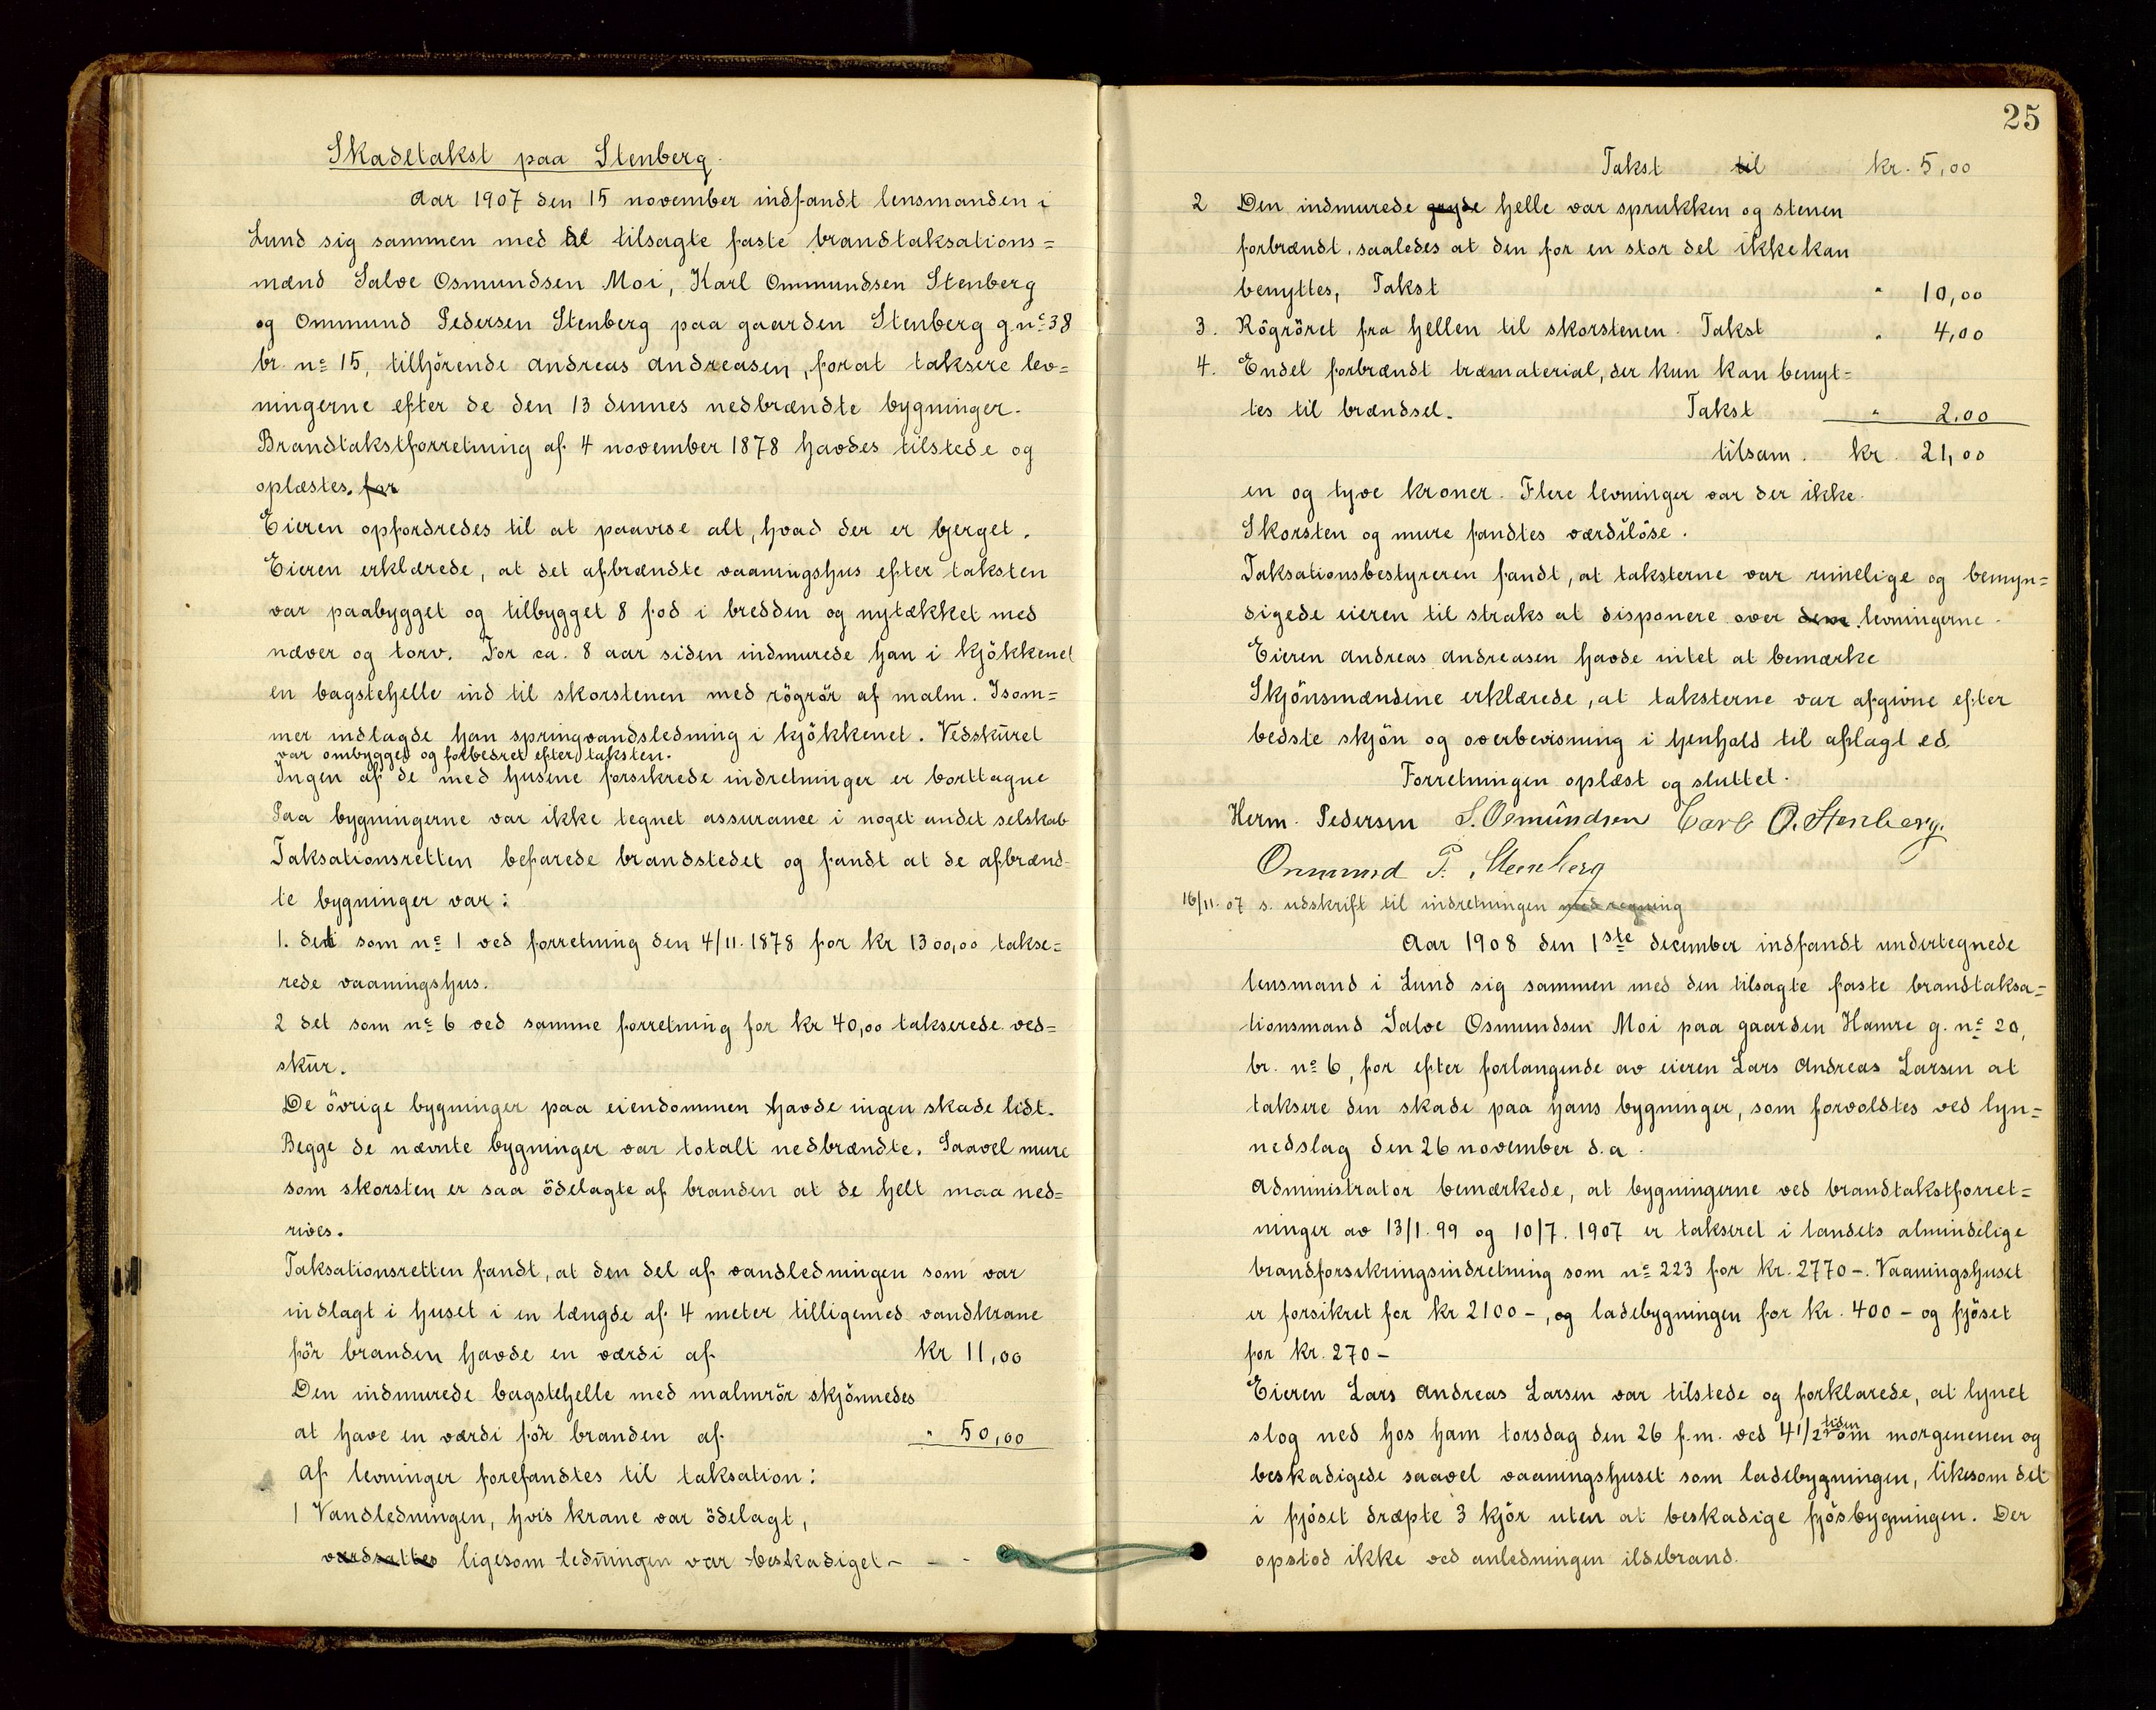 Skadetakst paa Stenberg.
Aar 1907 den 15 november indfandt lensmanden i
Lund sig sammen med de tilsagte faste brandtaksations=
mænd Salve Osmundsen Moi, Karl Ommundsen Stenberg
og Ommund Pedersen Stenberg paa gaarden Stenberg g.no 38
br. no 15, tilhörende Andreas Andreasen, forat taksere lev=
ningerne efter de den 13 dennes nedbrændte bygninger.
Brandtakstforretning af 4 november 1878 havdes tilstede og
oplæstes. for
Eieren opfordredes til at paavise alt, hvad der er bjerget.
Eieren erklærede, at det afbrændte vaaningshus efter taksten
var paabygget og tilbygget 8 fod i bredden og nytækket med
næver og torv. For ca. 8 aar siden indmurede han i kjökkenet
en bagstehelle ind til skorstenen med rögrör af malm. Isom=
mer indlagde han springvandsledning i kjökkenet. Vedskuret
var ombygget og forbedret efter taksten.
Ingen af de med husene forsikrede indretninger er borttagne
Paa bygningerne var ikke tegnet assurance i noget andet selskab
Taksationsretten befarede brandstedet og fandt at de afbrænd-
te bygninger var:
1. det som no 1 ved forretning den 4/11. 1878 for kr 1300,00 takse=
rede vaaningshus.
2 det som no 6 ved samme forretning for kr 40,00 takserede ved=
skur.
De övrige bygninger paa eiendommen havde ingen skade lidt.
Begge de nævnte bygninger var totalt nedbrændte. Saavel mure
som skorsten er saa ödelagte af branden at de helt maa ned=
rives.
Taksationsretten fandt, at den del af vandledningen som var
indlagt i huset i en længde af 4 meter tilligemed vandkrane
för branden havde en værdi af kr 11,00
Den indmurede bagstehelle med malmrör skjönnedes
at have en værdi för branden af " 50,00
Af levninger forefandtes til taksation:
1 Vandledningen, hvis krane var ödelagt,
værdsattes ligesom ledningen var beskadiget - - -
25
Takst til kr. 5,00
2 Den indmurede gryde helle var sprukken og stenen
forbrændt, saaledes at den for en stor del ikke kan
benyttes, Takst " 10,00
3. Rögröret fra hellen til skorstenen. Takst " 4,00
4. Endel forbrændt træmaterial, der kun kan benyt=
tes til brændsel. Takst " 2,00
tilsam. kr. 21,00
en og tyve kroner. Flere levninger var der ikke.
Skorsten og mure fandtes værdilöse.
Taksationsbestyreren fandt, at taksterne var rimelige og bemyn=
digede eieren til straks at disponere over dem levningerne.
Eieren Andreas Andreasen havde intet at bemærke
Skjönsmændene erklærede, at taksterne var afgivne efter
bedste skjön og overbevisning i henhold til aflagt ed.
Forretningen oplæst og sluttet.
Herm. Pedersen S. Osmundsen Carl O. Stenberg.
Ommund P. Stenberg
16/11. 07 s. udskrift til indretningen med regning
Aar 1908 den 1ste december indfandt undertegnede
lensmand i Lund sig sammen med den tilsagte faste brandtaksa=
tionsmand Salve Osmundsen Moi paa gaarden Hamre g. no 20,
br. no 6, for efter forlangende av eieren Lars Andreas Larsen at
taksere den skade paa hans bygninger, som forvoldtes ved lyn=
nedslag den 26 november d.a.
Administrator bemærkede, at bygningerne ved brandtakstforret=
ninger av 13/1. 99 og 10/7. 1907 er takseret i landets almindelige
brandforsikringsindretning som no 223 for kr. 2770-. Vaaningshuset
er forsikret for kr 2100-, og ladebygningen for kr. 400- og fjöset
for kr. 270-
Eieren Lars Andreas Larsen var tilstede og forklarede, at lynet
slog ned hos ham torsdag den 26 f.m. ved 4 1/2 tiden om morgenenen og
beskadigede saavel vaaningshuset som ladebygningen, likesom det
i fjöset dræpte 3 kjör uten at beskadige fjösbygningen. Der
opstod ikke ved anledningen ildebrand.